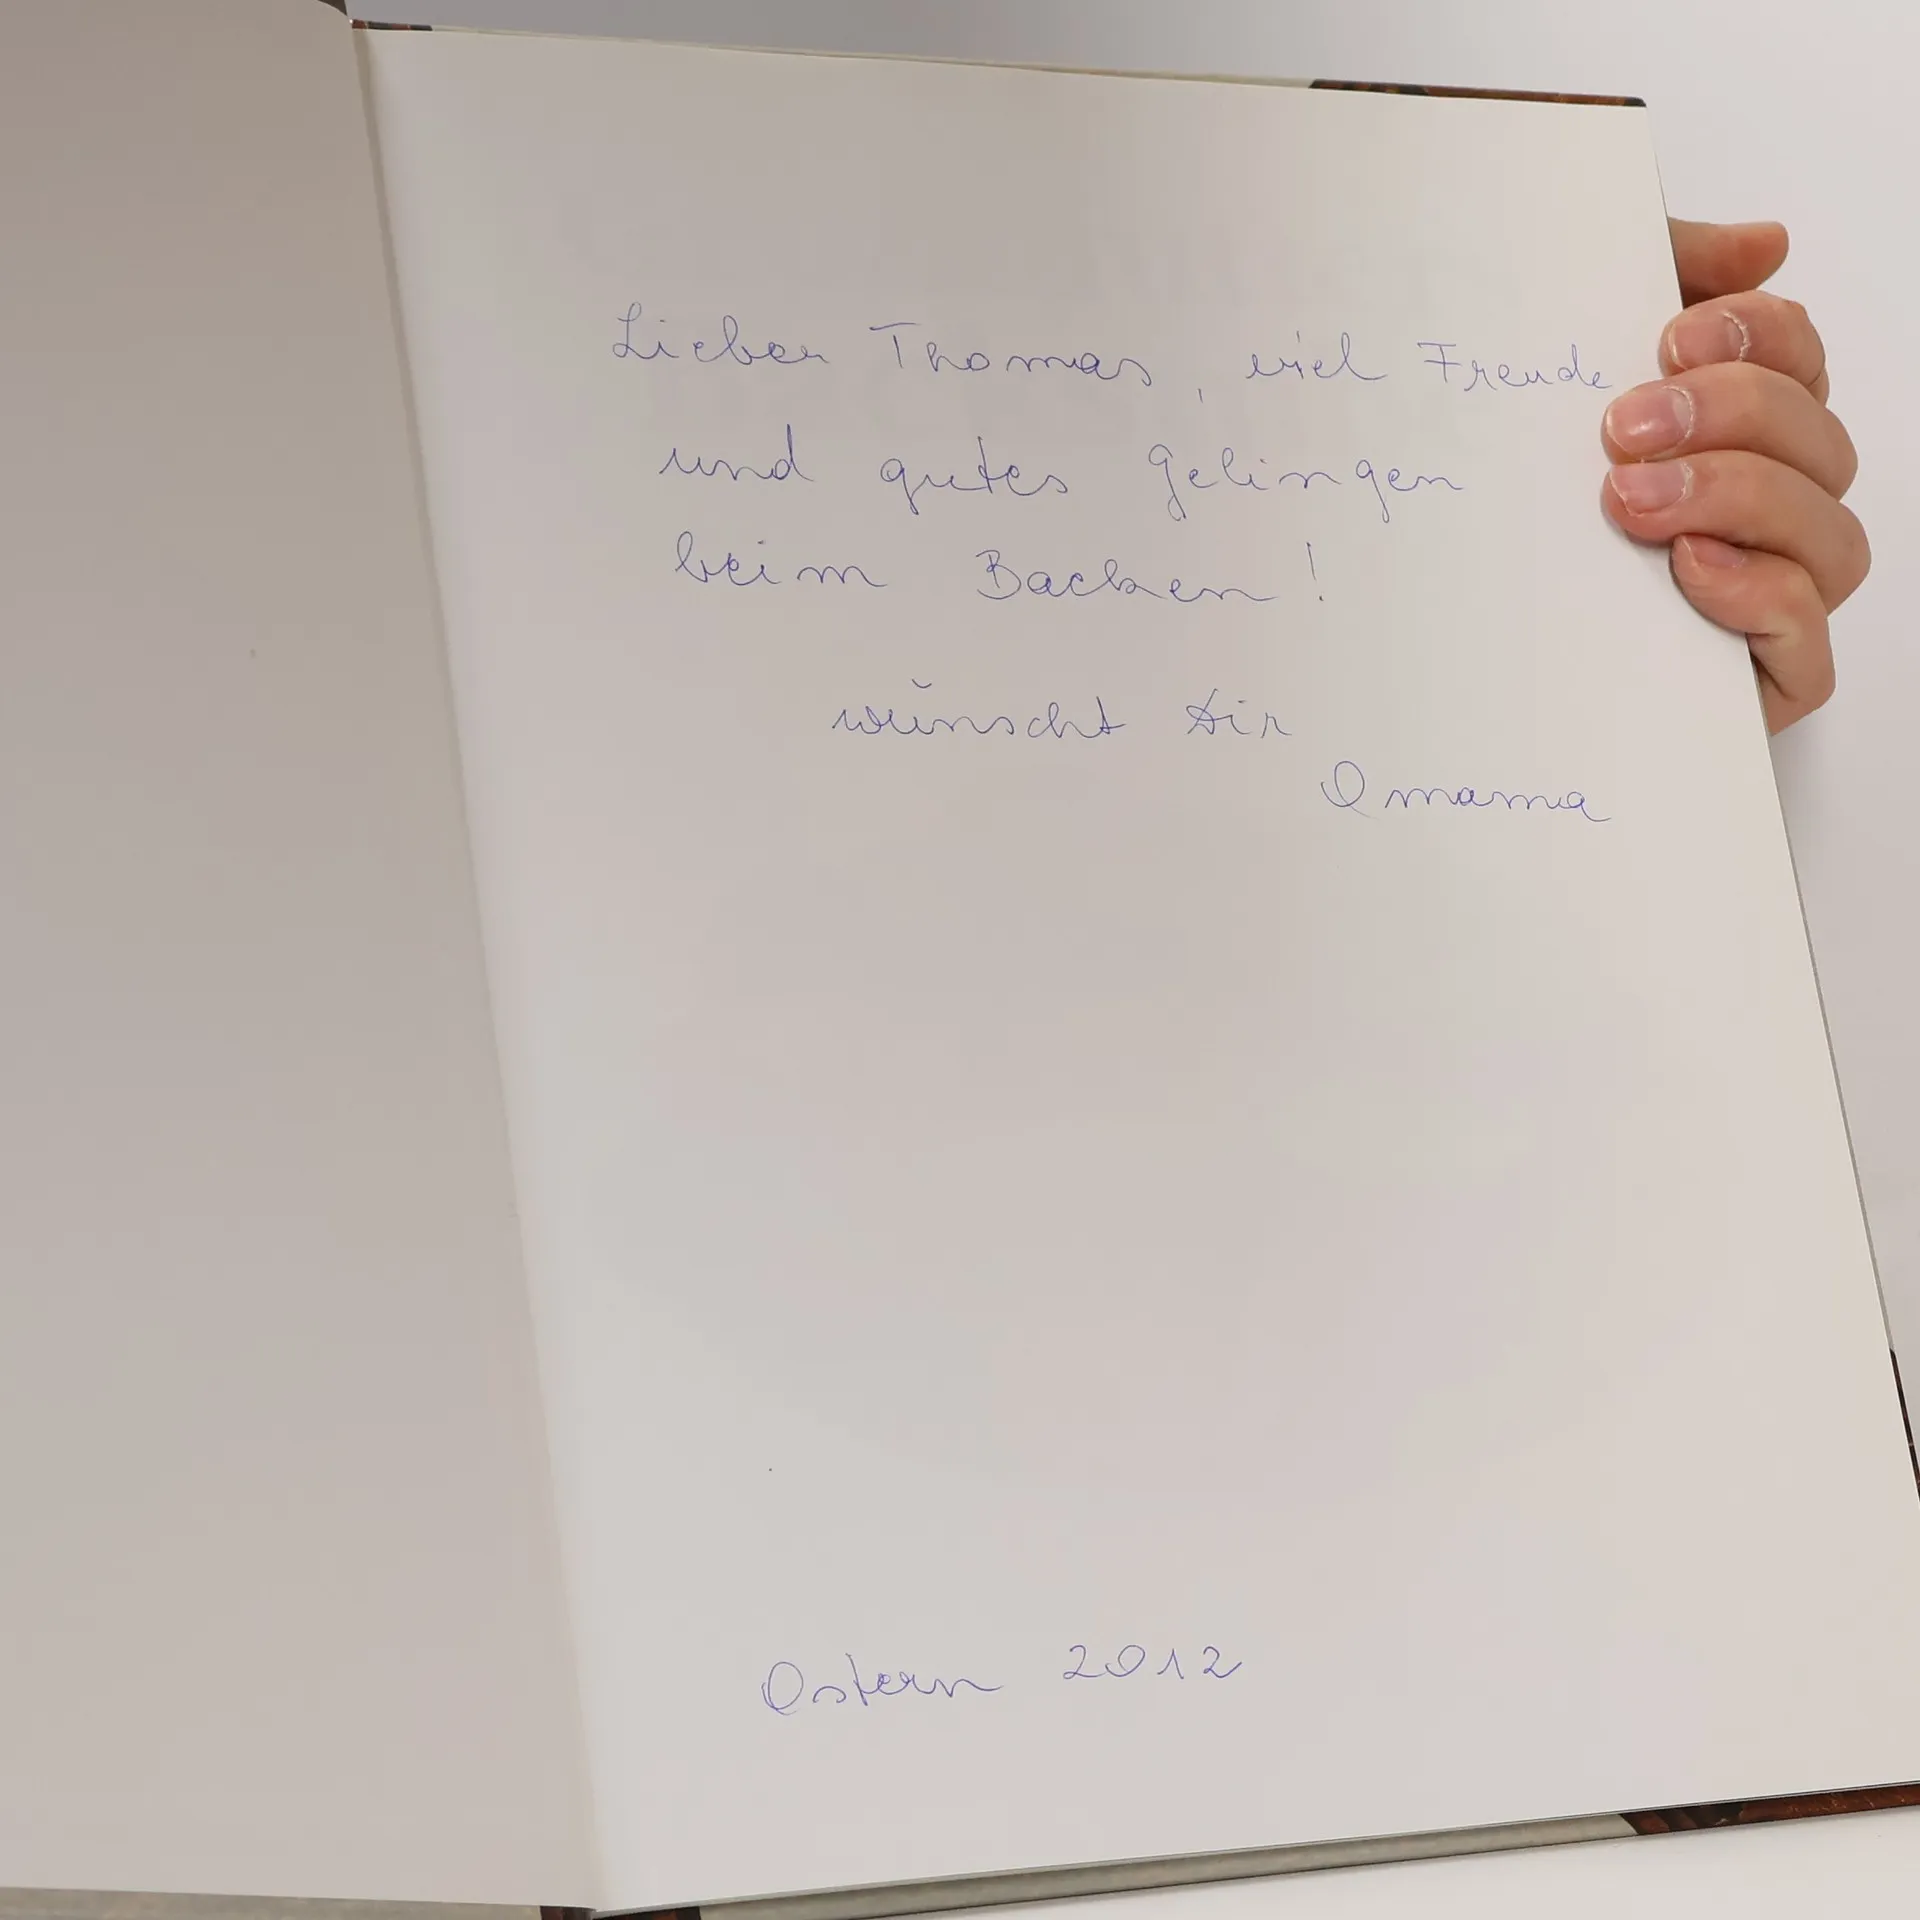 Lieber Thomas, viel Freude
und gutes Gelingen
beim Backen!
wünscht Dir
Omama
Ostern 2012